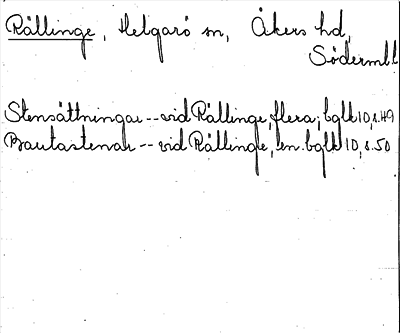 Rällinge, Helgarö sn, Åkers hd,
Södermld
Stensättningar -- vid Rällinge, flera; bglk 10, s. 49
Bautastenar -- vid Rällinge, en. bglk 10, s. 50